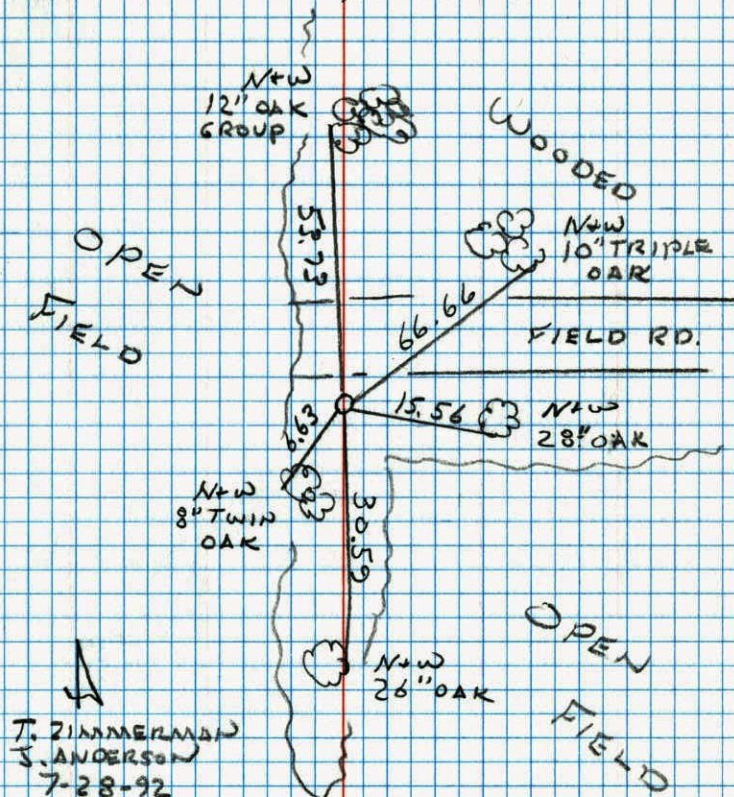 N+W
12" OAK
GROUP
WOODED
53.73
OPEN
FIELD
N+W
10" TRIPLE
OAK
66.66
FIELD RD.
15.56
N+W
28" OAK
6.63
N+W
8" TWIN
OAK
30.59
N+W
26" OAK
OPEN
FIELD
T. ZIMMERMAN
J. ANDERSON
7-28-92